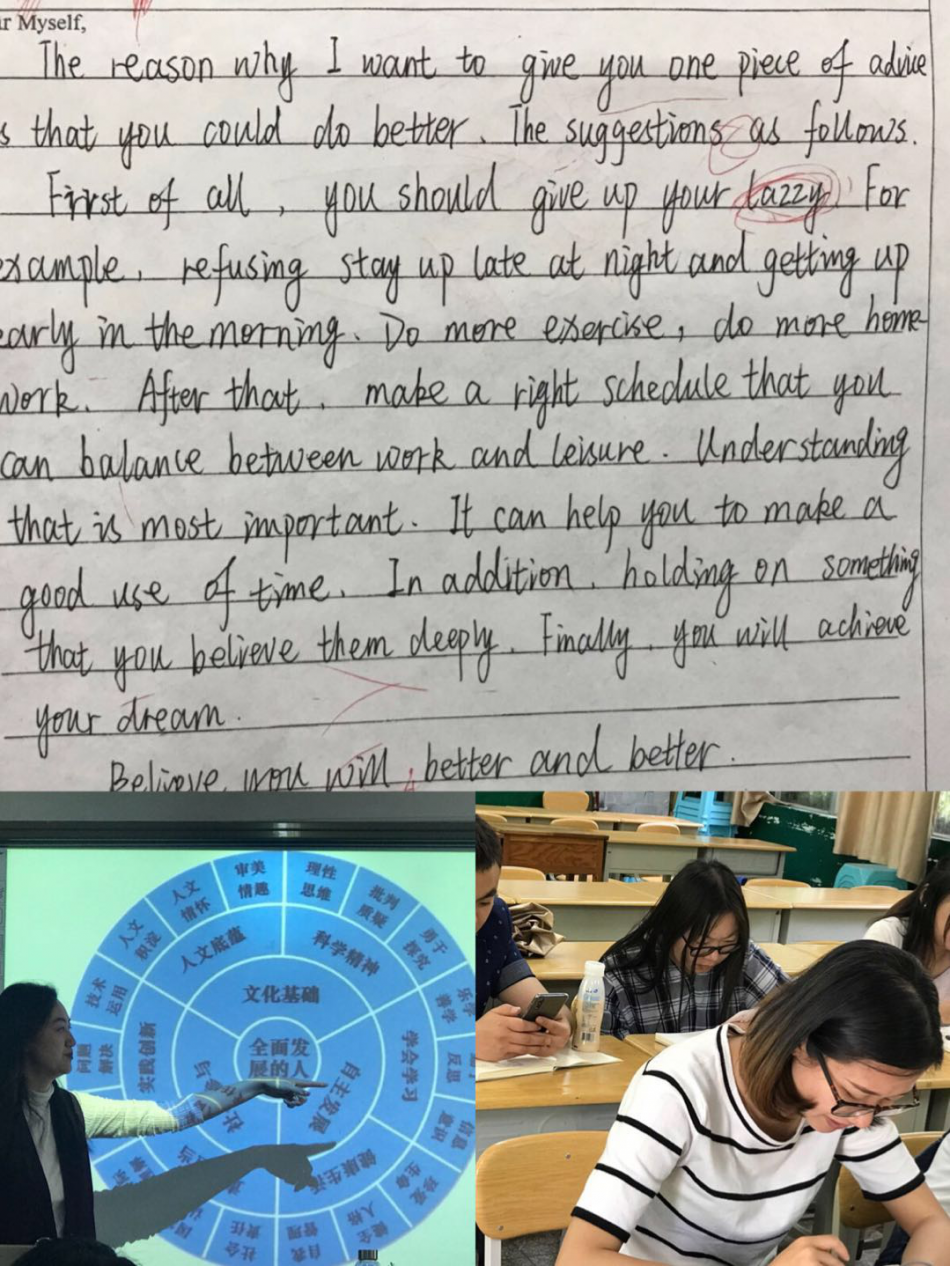 r Myself,
The reason why I want to give you one piece of advice
s that you could do better. The suggestions as follows.
First of all, you should give up your lazzy For
example, refusing stay up late at night and getting up
early in the morning. Do more exercise, do more home-
work. After that, make a right schedule that you
can balance between work and leisure. Understanding
that is most important. It can help you to make a
good use of time. In addition, holding on something
that you believe them deeply. Finally, you will achieve
your dream.
Believe you will better and better.
审美
情趣
理性
思维
人文
情怀
批判
质疑
人文
积淀
勇于
探究
人文底蕴
科学精神
技术
运用
文化基础
乐学
善学
问题
解决
实践创新
全面发
展的人
学会学习
反思
自主发展
信息
意识
健康生活
珍爱
生命
社会
责任
自我
管理
健全
人格